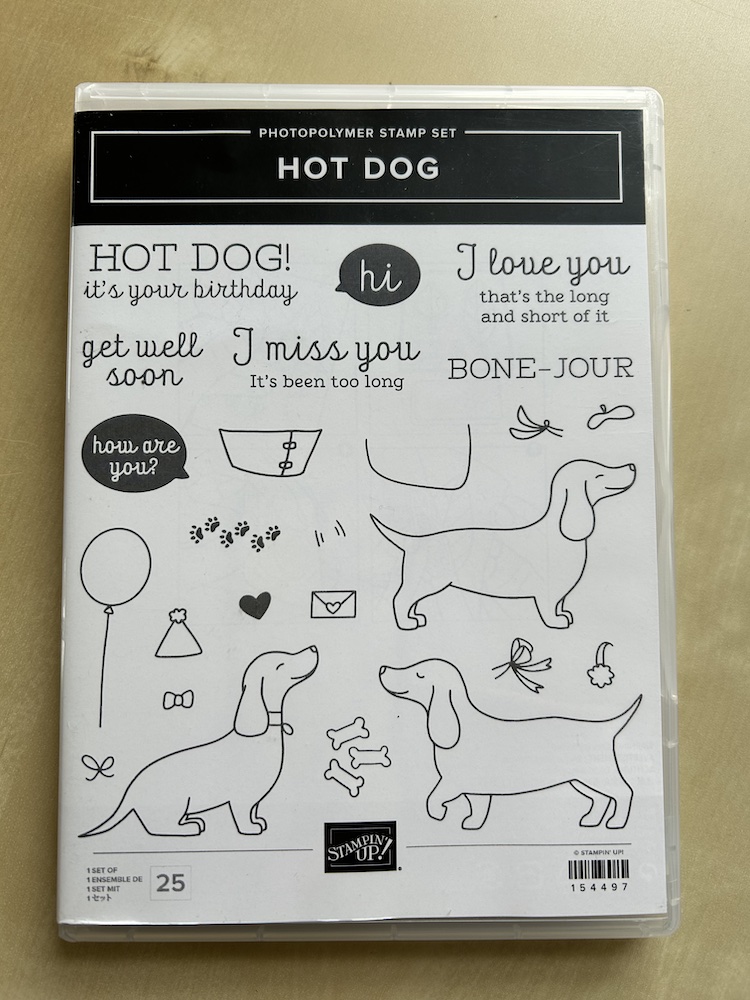 PHOTOPOLYMER STAMP SET
HOT DOG
HOT DOG!
it's your birthday
hi
I love you
that's the long
and short of it
get well
soon
I miss you
It's been too long
BONE-JOUR
how are
you?
STAMPIN'
UP!
®
1 SET OF
1 ENSEMBLE DE
1 SET MIT
1 セット
25
© STAMPIN' UP!
154497